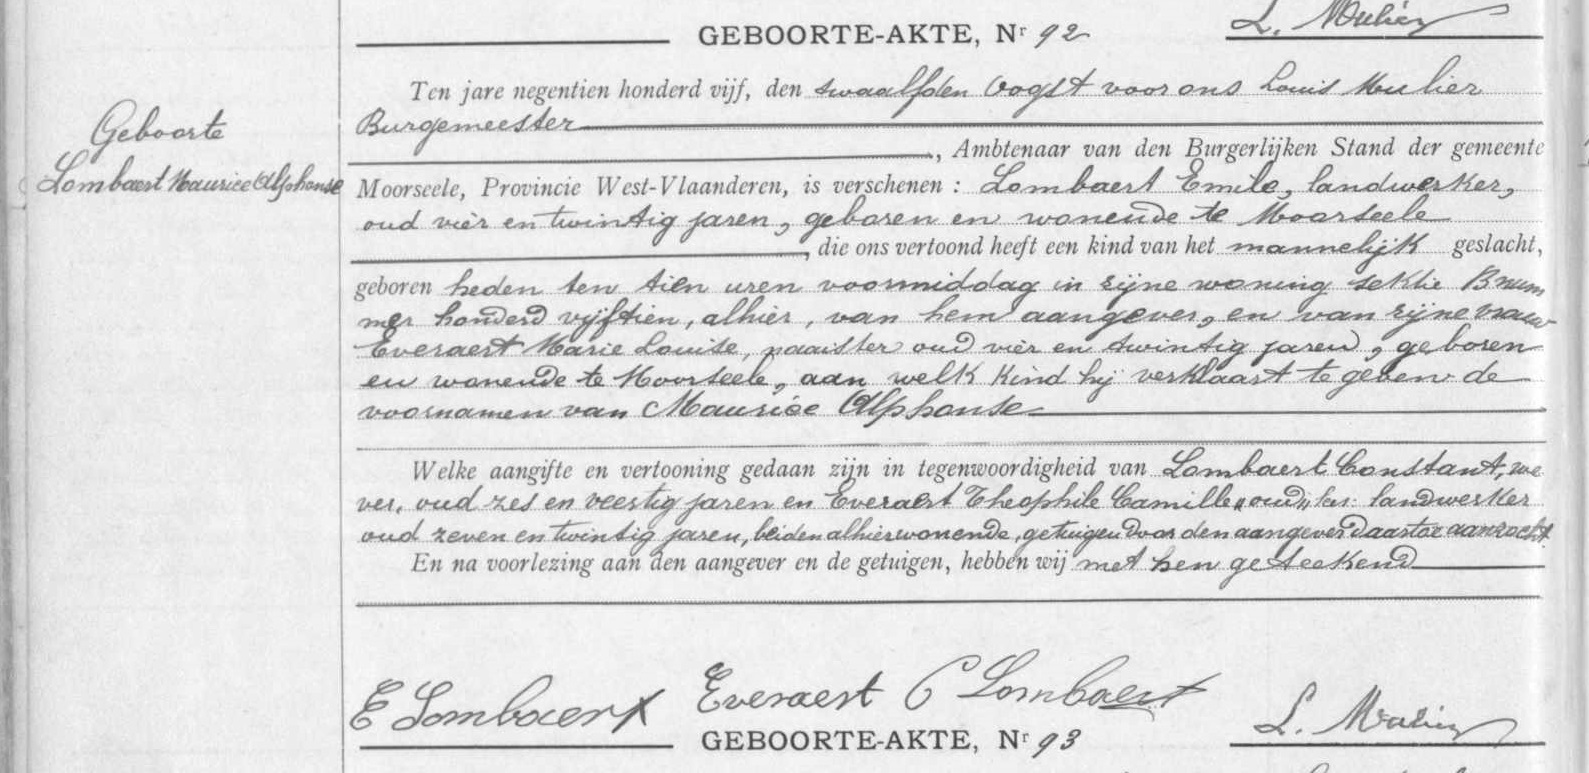 L. Mulier
GEBOORTE-AKTE, Nr 92
Geboorte
Lombaert Maurice Alphonse
Ten jare negentien honderd vijf, den twaalfden Oogst voor ons Louis Mulier
Burgemeester
, Ambtenaar van den Burgerlijken Stand der gemeente
Moorseele, Provincie West-Vlaanderen, is verschenen : Lombaert Emile, landwerker,
oud vier en twintig jaren, geboren en wonende te Moorseele
, die ons vertoond heeft een kind van het mannelijk geslacht,
geboren heden ten tien uren voormiddag in zijne woning sektie B num
mer honderd vijftien, alhier, van hem aangever, en van zijne vrouw
Everaert Marie Louise, naaister oud vier en twintig jaren, geboren
en wonende te Moorseele, aan welk kind hij verklaart te geven de
voornamen van Maurice Alphonse
Welke aangifte en vertooning gedaan zijn in tegenwoordigheid van Lombaert Constant, we
ver, oud zes en veertig jaren en Everaert Theophile Camille landwerker
oud zeven en twintig jaren, beiden alhier wonende, getuigen door den aangever daartoe aanzocht.
En na voorlezing aan den aangever en de getuigen, hebben wij met hen geteekend
E Lombaert Everaert C Lombaert L. Mulier
GEBOORTE-AKTE, Nr 93